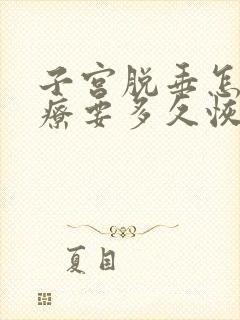 子宫脱垂怎
疗要多久恢
夏目